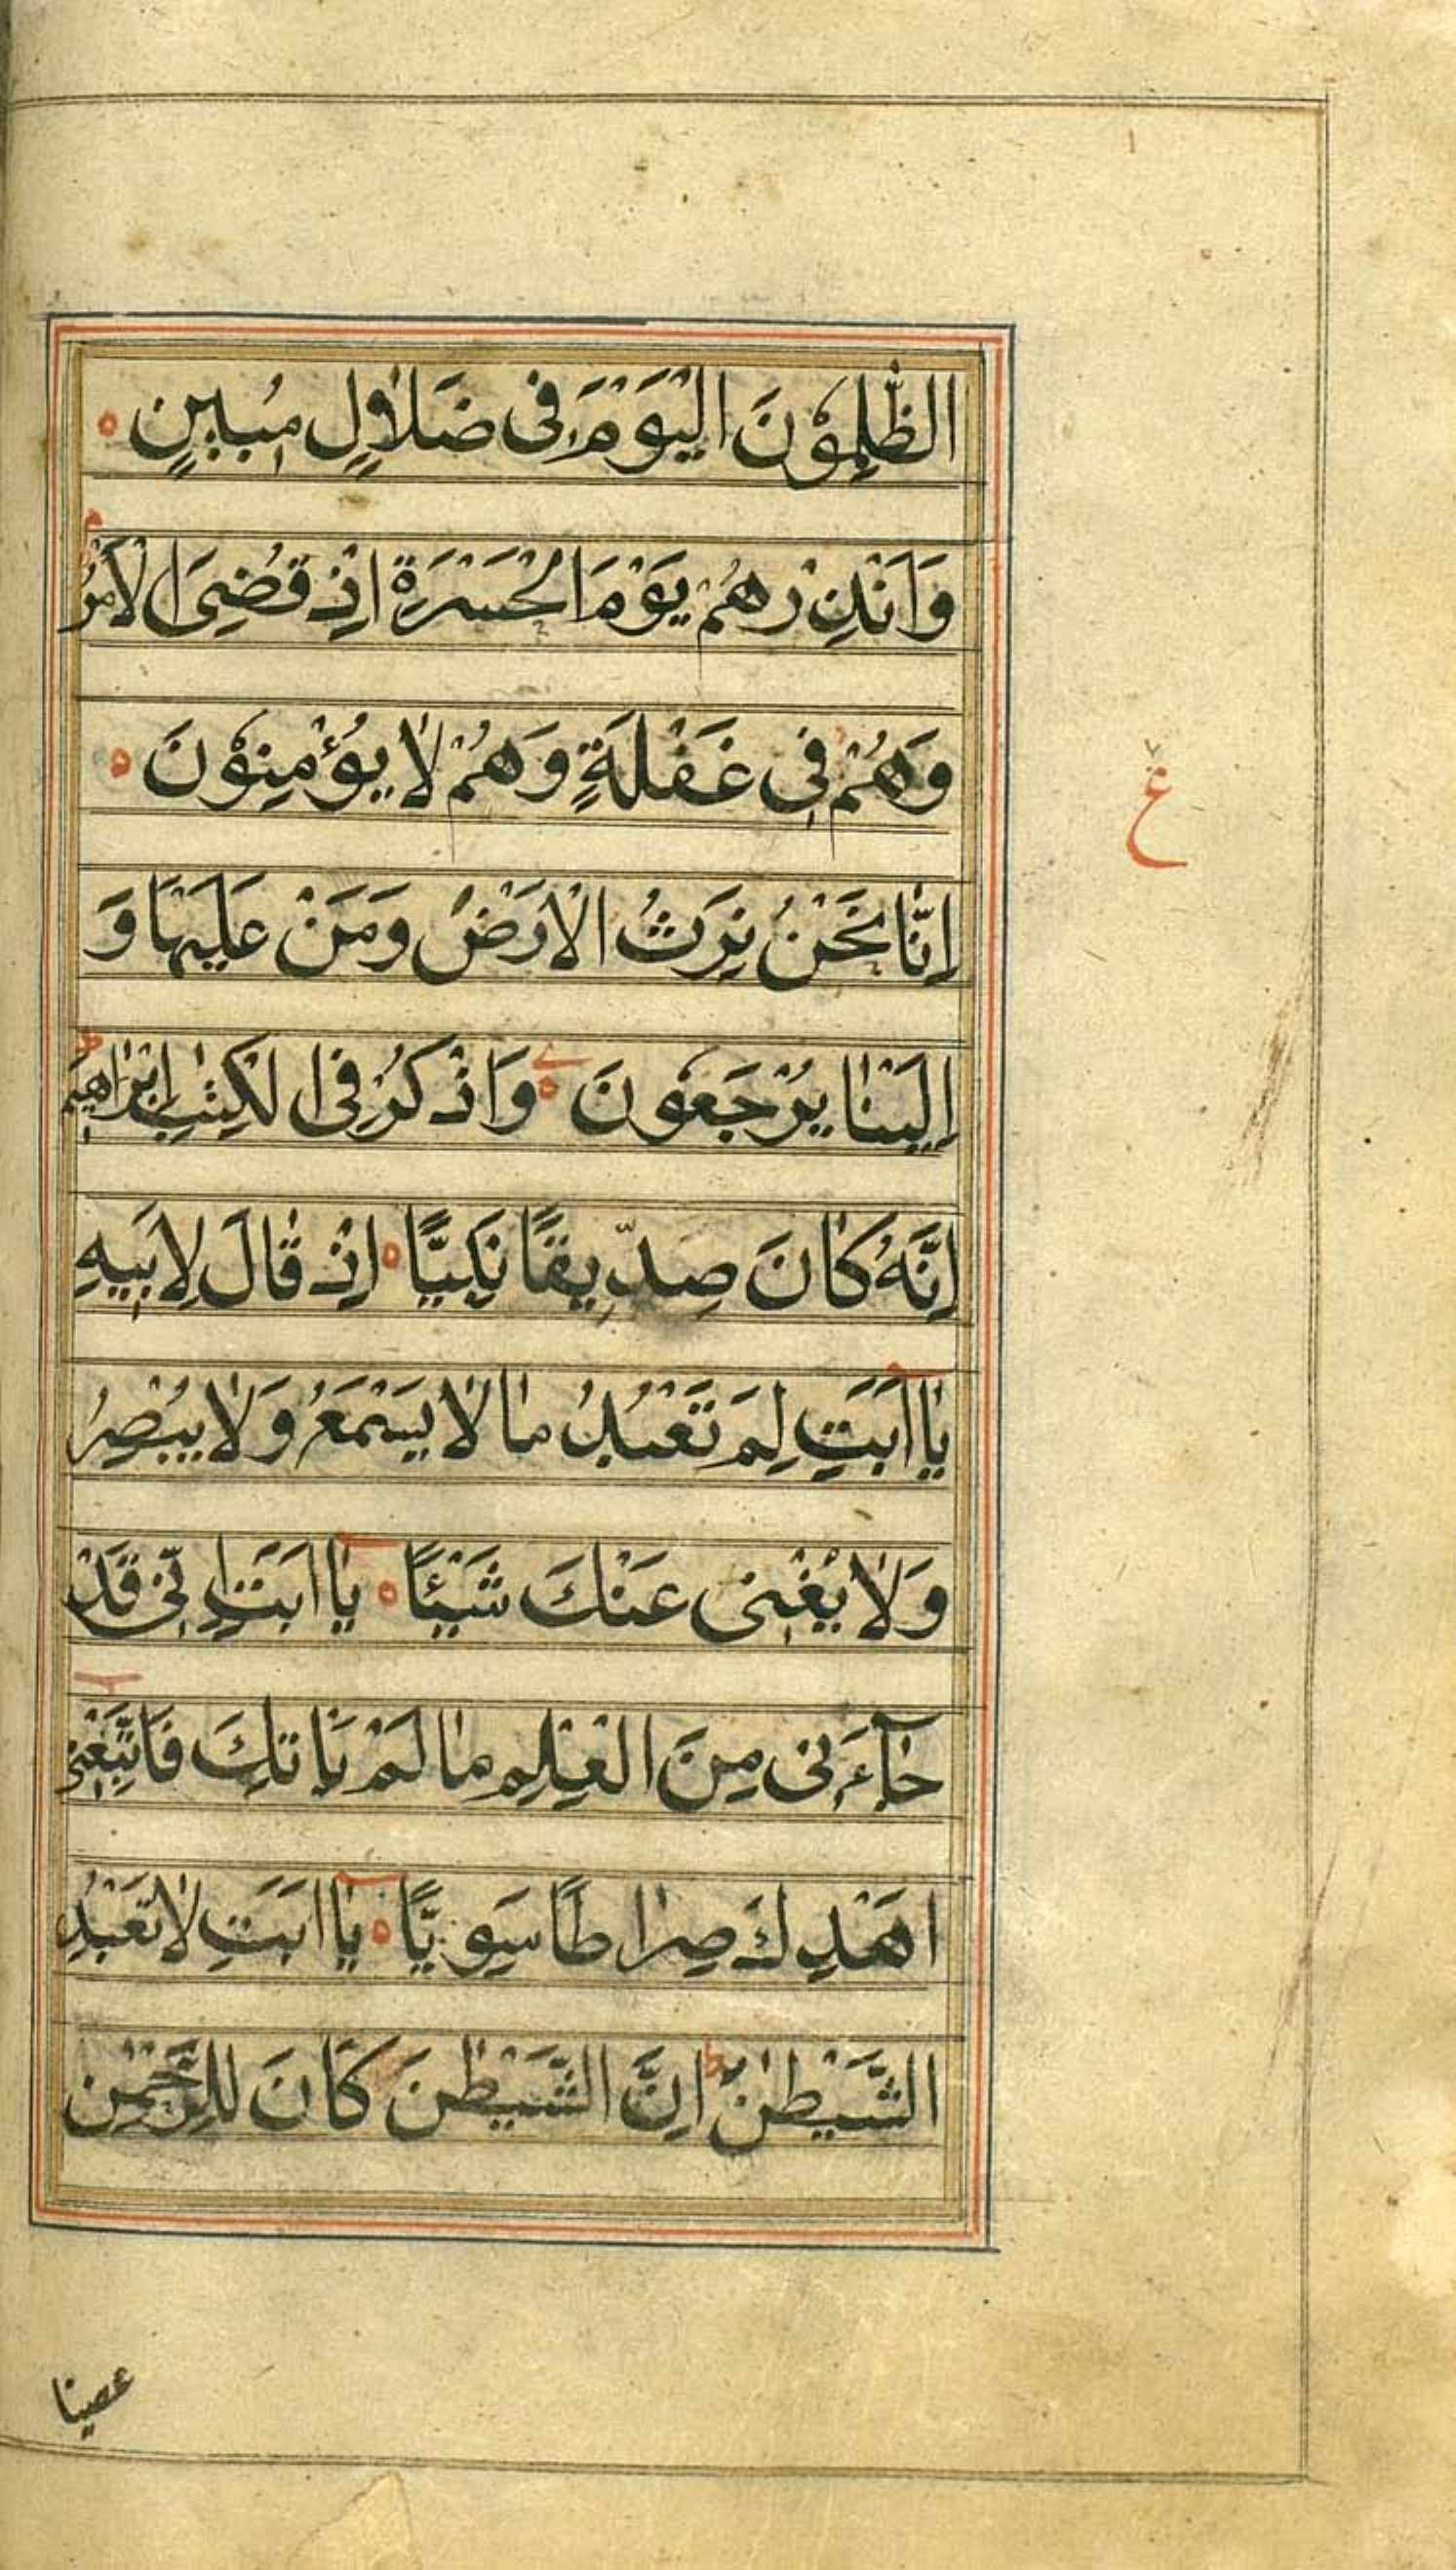 الظّٰلِمُوْنَ الْيَوْمَ فِى ضَلَالٍ مُبِيْنٍ ه
وَاَنْذِرْهُمْ يَوْمَ الْحَسْرَةِ اِذْ قُضِىَ الْاَمْرُ م
وَهُمْ فِى غَفْلَةٍ وَهُمْ لَا يُؤْمِنُوْنَ ه
اِنَّا نَحْنُ نَرِثُ الْاَرْضَ وَمَنْ عَلَيْهَا وَ
اِلَيْنَا يُرْجَعُوْنَ ه وَاذْكُرْ فِى الْكِتٰبِ اِبْرَاهِيْمَ ط
اِنَّهُ كَانَ صِدِّيقًا نَبِيًّا ه اِذْ قَالَ لِاَبِيْهِ
يَا اَبَتِ لِمَ تَعْبُدُ مَا لَا يَسْمَعُ وَلَا يُبْصِرُ
وَلَا يُغْنِى عَنْكَ شَيْئًا ه يَا اَبَتِ اِنِّى قَدْ
جَآءَنِى مِنَ الْعِلْمِ مَا لَمْ يَاْتِكَ فَاتَّبِعْنِى
اَهْدِكَ صِرَاطًا سَوِيًّا ه يَا اَبَتِ لَا تَعْبُدِ
الشَّيْطٰنَ ط اِنَّ الشَّيْطٰنَ كَانَ لِلرَّحْمٰنِ
ع
عصيا